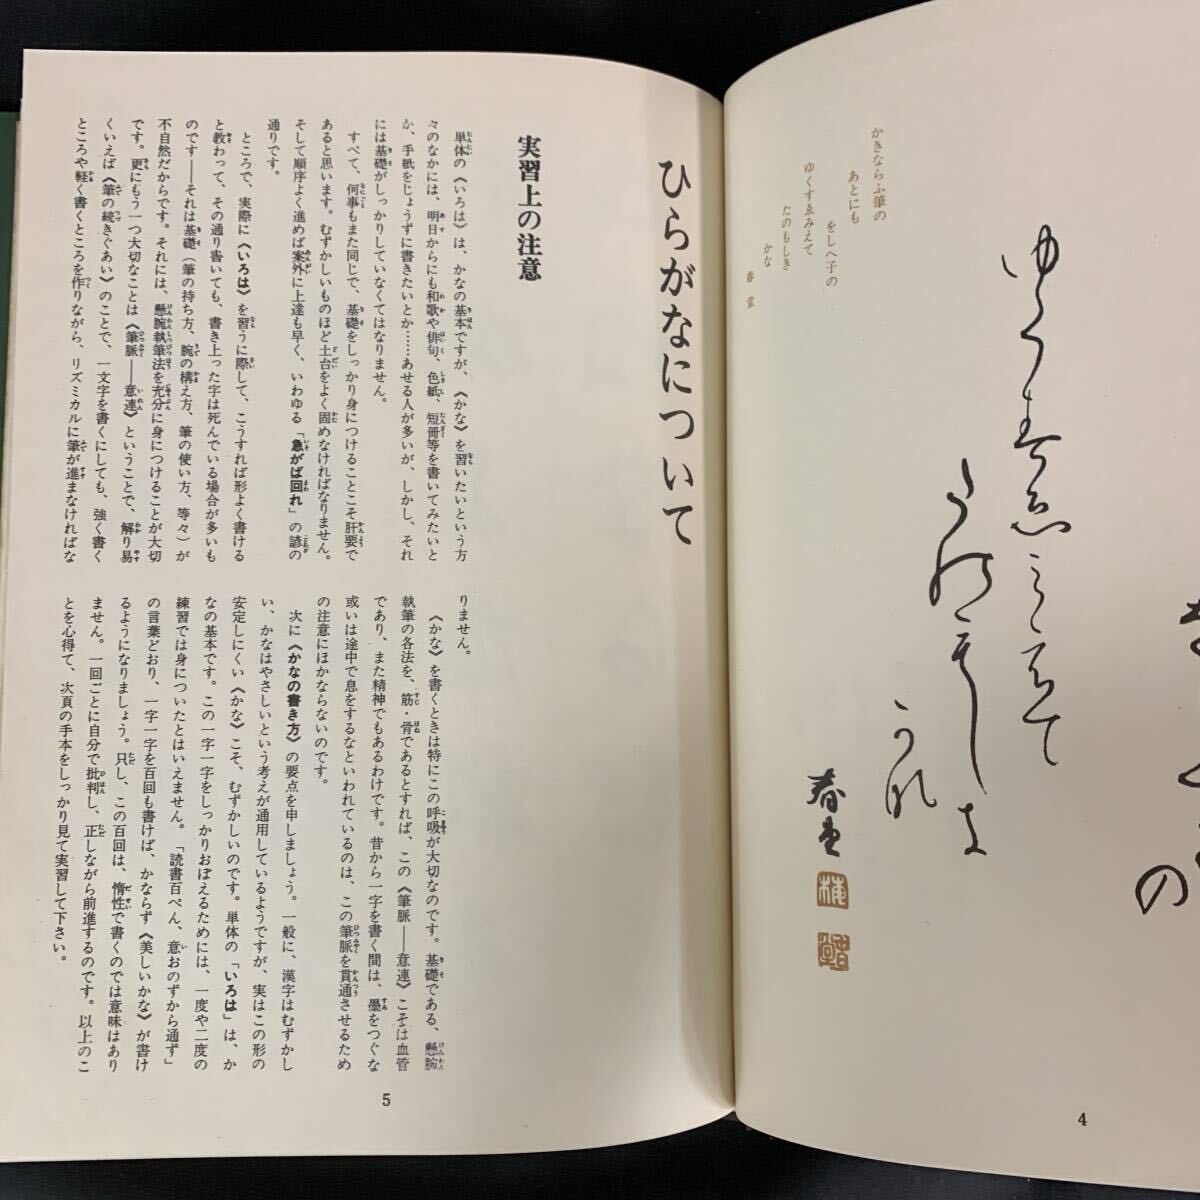 の
ゆくすゑみえて
たのもしき
かな
春堂
かきならふ筆の
あとにも
をしへ子の
ゆくすゑみえて
たのもしき
かな
春堂
4
ひらがなについて
実習上の注意
単体の《いろは》は、かなの基本ですが、《かな》を習いたいという方
々のなかには、明日からにも和歌や俳句、色紙、短冊等を書いてみたいと
か、手紙をじょうずに書きたいとか……あせる人が多いが、しかし、それ
には基礎がしっかりしていなくてはなりません。
すべて、何事もまた同じで、基礎をしっかり身につけることこそ肝要で
あると思います。むずかしいものほど土台をよく固めなければなりません。
そして順序よく進めば案外に上達も早く、いわゆる「急がば回れ」の諺の
通りです。
ところで、実際に《いろは》を習うに際して、こうすれば形よく書ける
と教わって、その通り書いても、書き上った字は死んでいる場合が多いも
のです——それは基礎（筆の持ち方、腕の構え方、筆の使い方、等々）が
不自然だからです。それには、懸腕執筆法を充分に身につけることが大切
です。更にもう一つ大切なことは《筆脈——意連》ということで、解り易
くいえば《筆の続きぐあい》のことで、一文字を書くにしても、強く書く
ところや軽く書くところを作りながら、リズミカルに筆が進まなければな
りません。
《かな》を書くときは特にこの呼吸が大切なのです。基礎である、懸腕
執筆の各法を、筋・骨であるとすれば、この《筆脈——意連》こそは血管
であり、また精神でもあるわけです。昔から一字を書く間は、墨をつぐな
或いは途中で息をするなといわれているのは、この筆脈を貫通させるため
の注意にほかならないのです。
次に《かなの書き方》の要点を申しましょう。一般に、漢字はむずかし
い、かなはやさしいという考えが通用しているようですが、実はこの形の
安定しにくい《かな》こそ、むずかしいのです。単体の「いろは」は、か
なの基本です。この一字一字をしっかりおぼえるためには、一度や二度の
練習では身についたとはいえません。「読書百ぺん、意おのずから通ず」
の言葉どおり、一字一字を百回も書けば、かならず《美しいかな》が書け
るようになりましょう。只し、この百回は、惰性で書くのでは意味はあり
ません。一回ごとに自分で批判し、正しながら前進するのです。以上のこ
とを心得て、次頁の手本をしっかり見て実習して下さい。
5